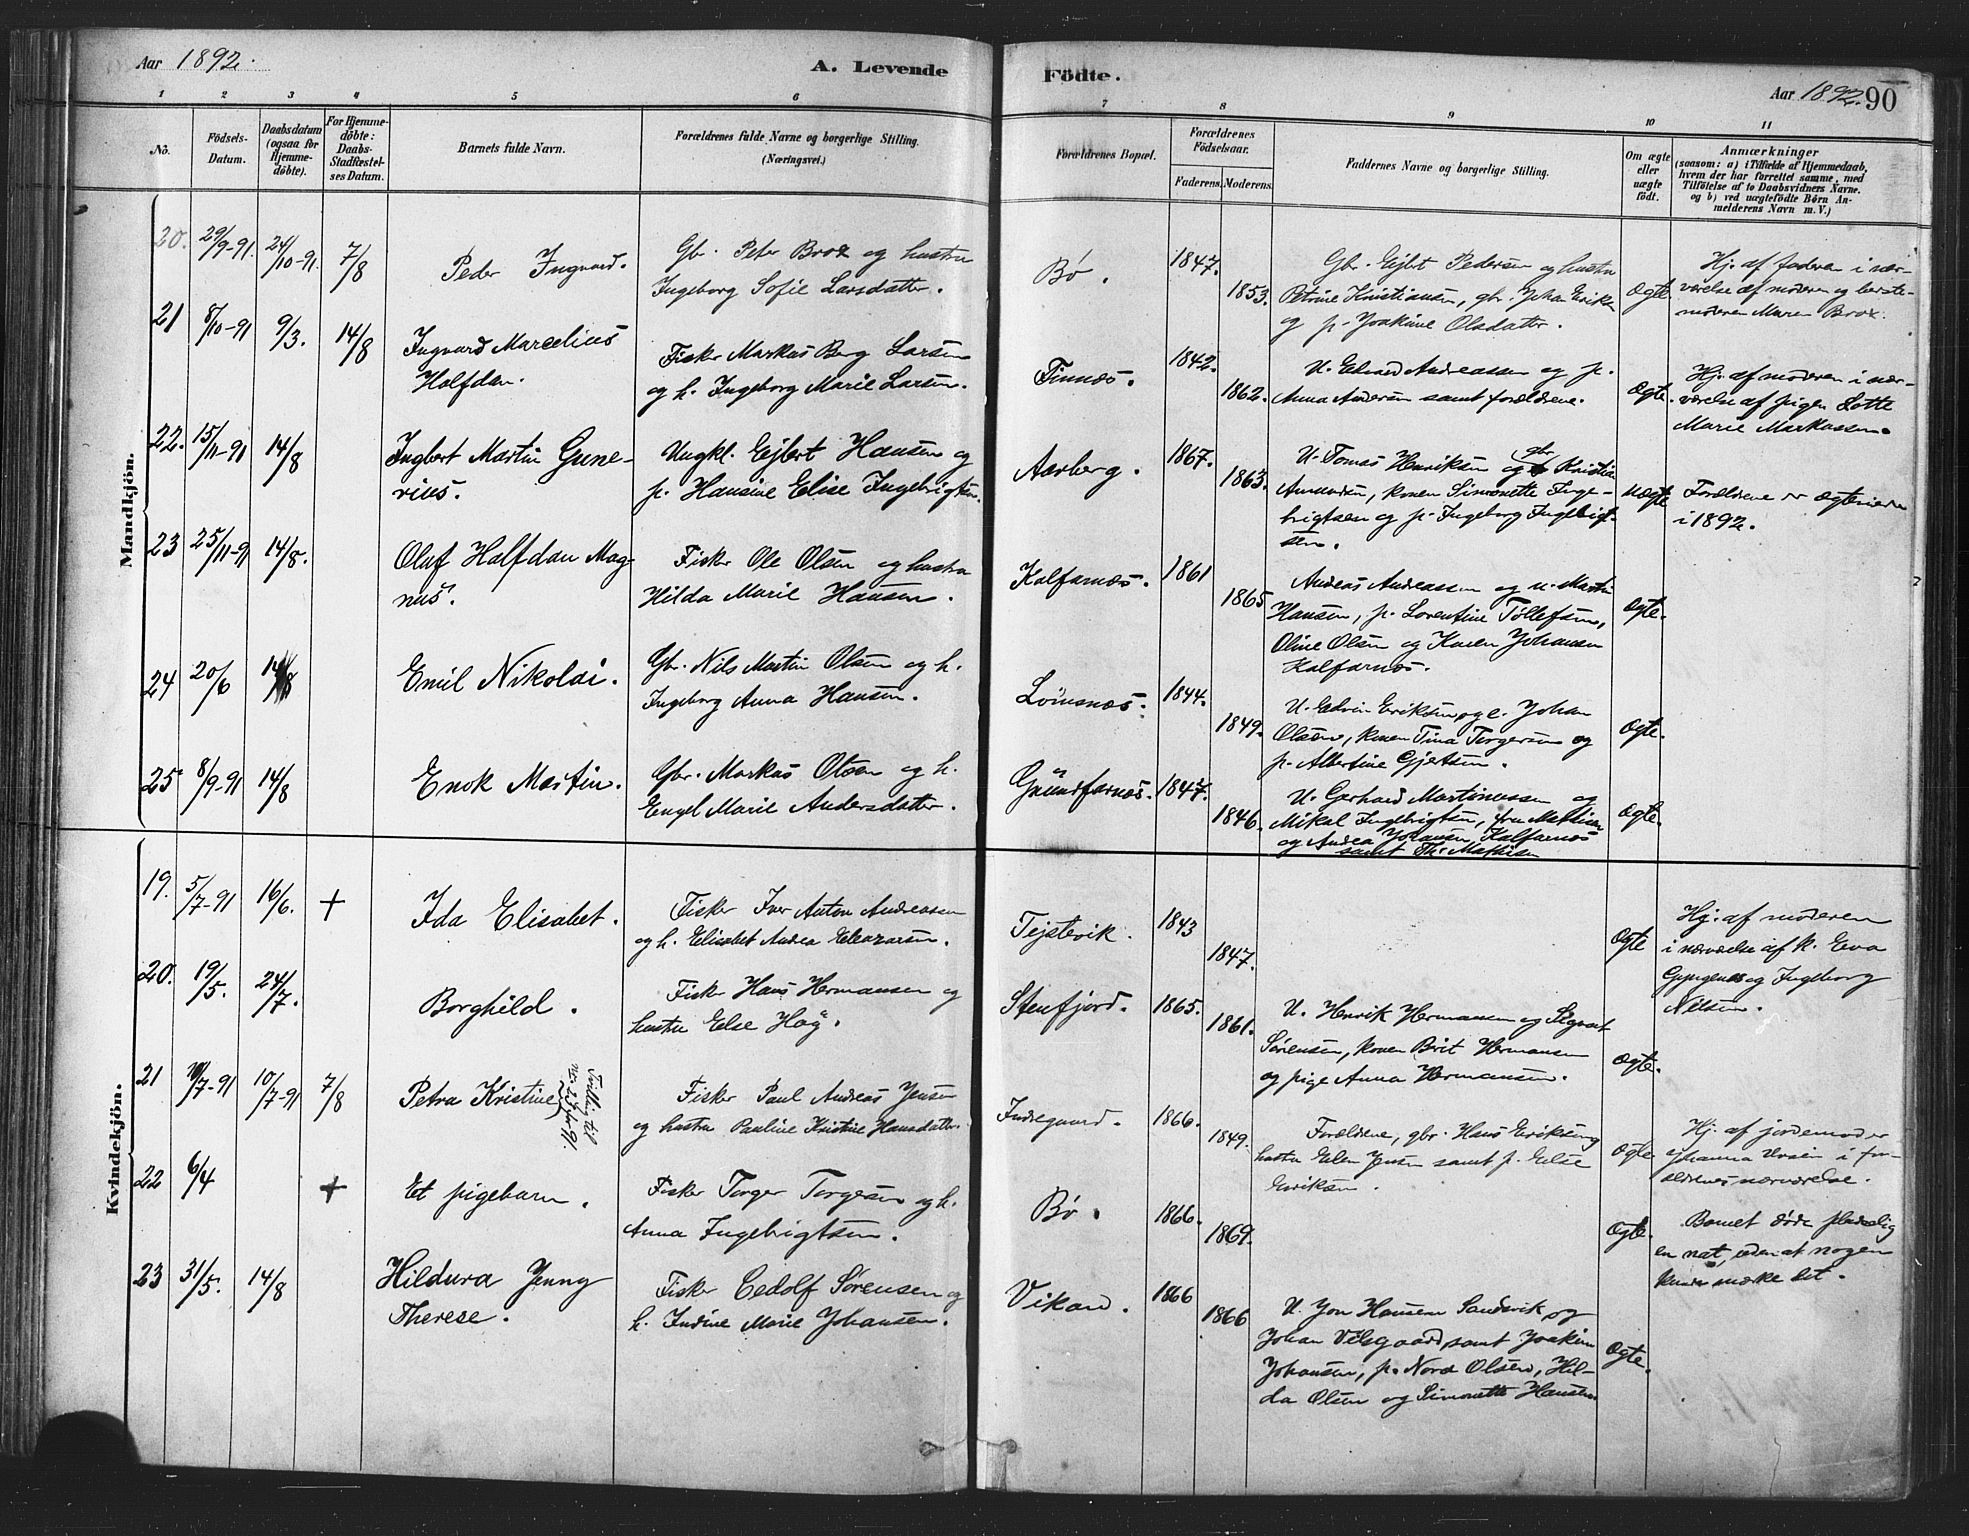 Aar 1892.
A. Levende
Födte.
Aar 1892. 90
1 2 3 4 5 6 7 8 9 10 11
No.
Födsels-
Datum.
Daabsdatum
(ogsaa for
Hjemme-
döbte).
For Hjemme-
döbte:
Daabs-
Stadfæstel-
ses Datum.
Barnets fulde Navn.
Forældrenes fulde Navne og borgerlige Stilling.
(Næringsvei.)
Forældrenes Bopæl.
Forældrenes
Födselsaar.
Faderens. Moderens.
Faddernes Navne og borgerlige Stilling.
Om ægte
eller
uægte
födt.
Anmærkninger
(saasom: a) i Tilfælde af Hjemmedaab,
hvem der har forrettet samme, med
Tilföielse af to Daabsvidners Navne.
og b) ved uægtefödte Börn An-
melderens Navn m.V.)
Mandkjön.
20. 29/9-91. 24/10-91. 7/8
Peder Ingvard.
Gbr. Peter Brox og hustru
Ingeborg Sofie Larsdatter.
Bø.
1847.
1853.
Gbr. Ejlert Pedersen og hustru
Petrine Kristiansen, gbr. Johan Eriks
og p. Joakime Olsdatter.
Ægte.
Hj. af faderen i nær-
værelse af moderen og beste-
moderen Maren Brox.
21 8/10-91 9/3. 14/8
Ingvard Marcelius
Halfdan.
Fisker Markus Berg Larsen
og h. Ingeborg Marie Larsen.
Finnæs.
1842.
1862.
U. Edvard Andreassen og p.
Anna Andersen samt forældrene.
Ægte.
Hj. af moderen i nær-
værelse af pigen Lotte
Marie Markussen.
22. 15/11-91 14/8
Ingbert Martin Gune-
rius.
Ungkl. Ejlert Hansen og
p. Hansine Elise Ingebrigtsen.
Aarberg.
1867.
1863.
U. Tomas Henriksen og gbr. Kristian
Amundsen, konen Simonette Inge-
brigtsen og p. Ingeborg Ingebrigt-
sen.
Uægte
Forældrene er ægteviede
i 1892.
23 25/11-91 14/8.
Oluf Halfdan Mag-
nus.
Fisker Ole Olsen og hustru
Hilda Marie Hansen.
Kalfarnæs.
1861
1865
Andreas Andreassen og u. Martin
Hansen, p. Lorentine Tollefsen,
Oline Olsen og Karen Johansen
Kalfarnæs.
Ægte.
24 20/6 14/8
Emil Nikolai.
Gbr. Nils Martin Olsen og h.
Ingeborg Anna Hansen.
Lømsnæs.
1844.
1849.
U. Edvin Eriksen og e. Johan
Olsen, konen Tina Torgersen og
p. Albertine Gjertsen.
Ægte.
25 8/9-91 14/8
Enok Martin.
Gbr. Markus Olsen og h.
Engel Marie Andersdatter.
Grundfarnæs.
1847.
1846.
U. Gerhard Martinussen og
Mikal Ingebrigtsen, fru Mathisen
og Andrea Johansen Kalfarnæs
samt Th. Mathisen
Ægte.
Kvindekjön.
19. 5/7-91 16/6. +
Ida Elisabet.
Fisker Iver Anton Andreassen
og h. Elisabet Andrea Eleazarsen.
Tejstevik.
1843
1847.
Ægte
Hj. af moderen
i nærværelse af k. Eva
og Ingeborg
Nilsen.
20. 19/5. 24/7.
Borghild.
Fisker Hans Hermansen og
hustru Else Hog.
Stenfjord.
1865.
1861.
U. Henrik Hermansen og Sigvart
Sørensen, konen Brit Hermansen
og pige Anna Hermansen.
Ægte.
21 10/7-91 10/7-91 7/8
Petra Kristine
Tvilling til
Fisker Paul Andreas Jensen
og hustru Pauline Kristine Hansdatter.
Indregaard.
1866.
1849.
Forældrene, gbr. Hans Eriksen og
hustru Elen Jensen samt p. Else
Eriksen.
Ægte
Hj. af jordemoder
Johanna Ursin i for-
ældrenes nærværelse.
22 6/4 +
Et pigebarn.
Fisker Torger Torgersen og h.
Anna Ingebrigtsen.
Bø.
1866.
1869.
Ægte.
Barnet døde pludselig
en nat, uden at nogen
kunde mærke det.
23 31/5. 14/8
Hildura Jenny
Therese.
Fisker Cedolf Sørensen og
h. Indine Marie Johansen.
Vikan.
1866
1866
U. Jon Hansen Sandvik og
Johan Velsgaard samt Joakim
Johansen, p. Nora Olsen, Hil-
da Olsen og Simonette Hansen
Ægte.